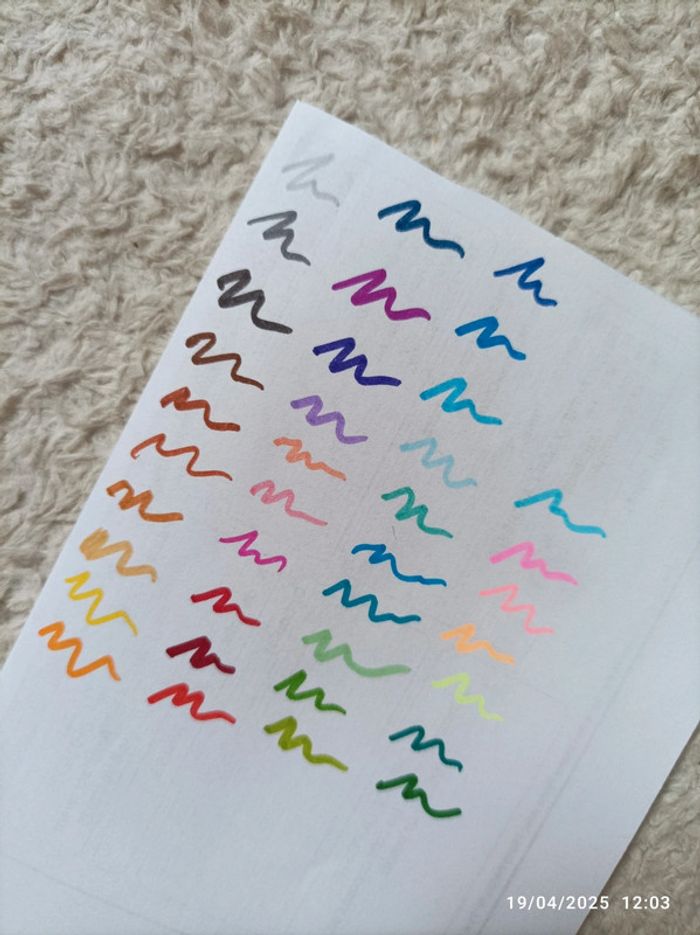 19/04/2025 12:03